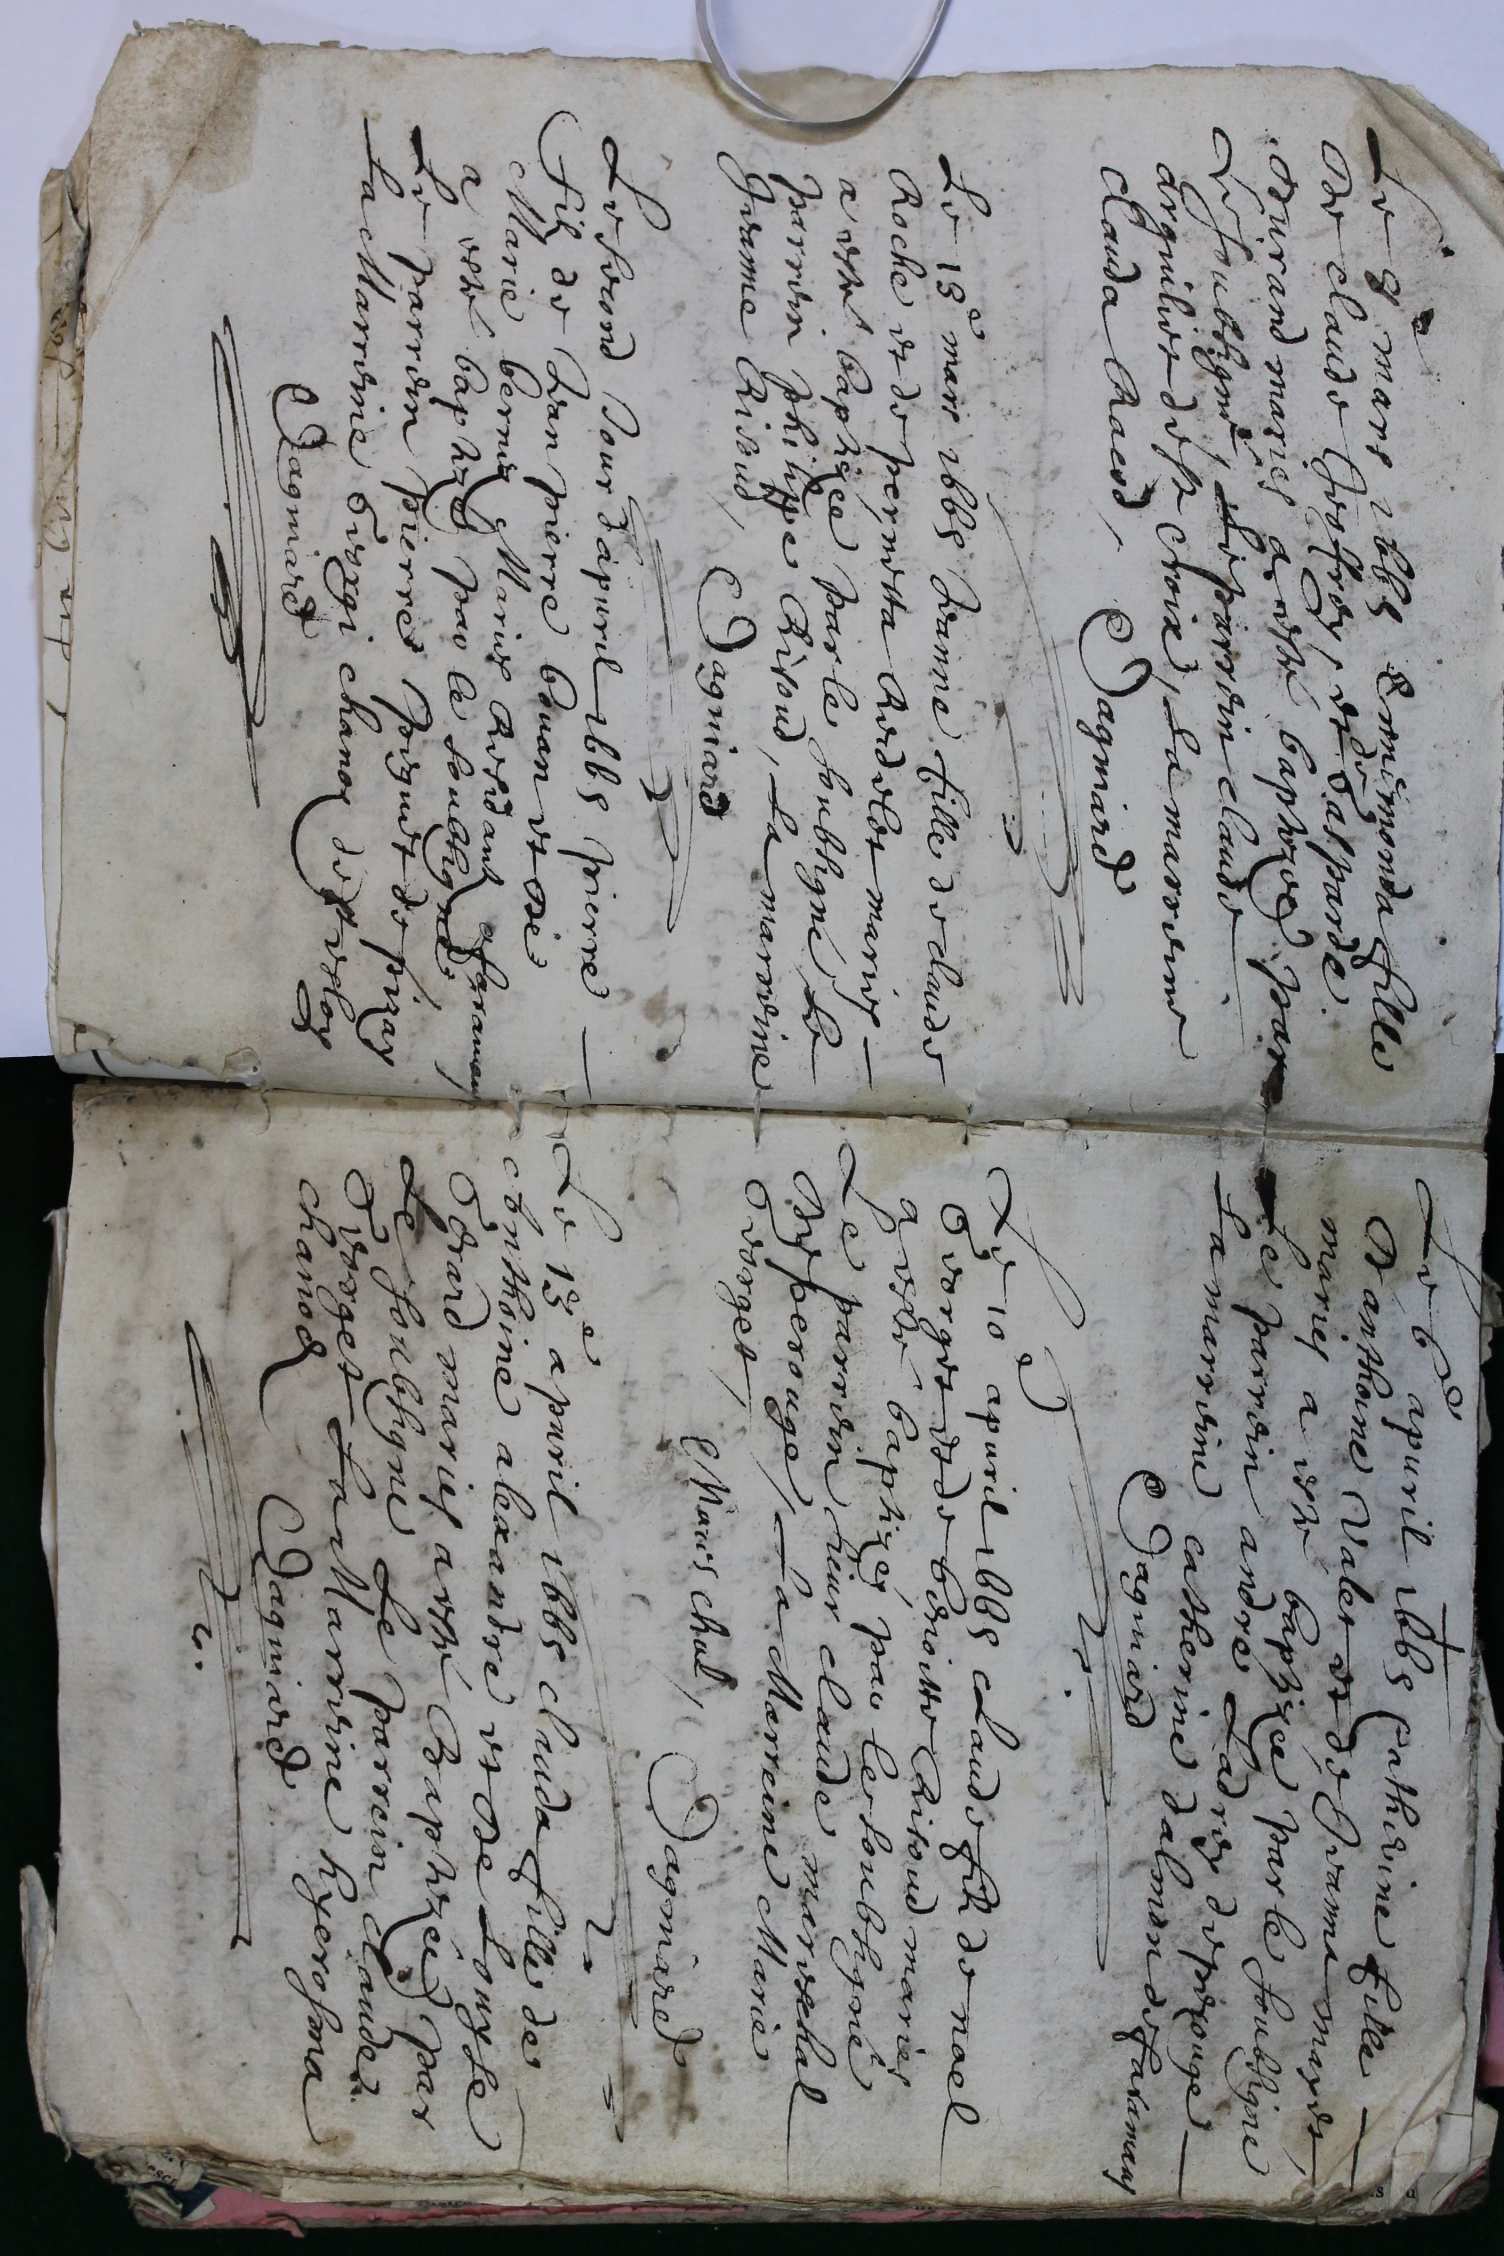 Le 9 mars 1665 Ennemonda fille
de claude Geofroy, et de gasparde
durand mariés a esté baptizée par
Le soubsigné, Le parrein claude
arguilliet de st croix, La marreine
clauda
Dagniard
Le 18e mars 1665 Jeanne fille de claude
Roche et de pernetta mariés
a esté baptizée par le soubsigné Le
parrein philippe Rivoud, La marreine
Jeanne Rivoud,
Dagniard
Le second Jour dapuril 1665 pierre
Fils de Jean pierre bouan et de
Marie bernis Mariés Residants a faramans
a esté baptizé par le soubsigné,
Le parrein pierre de pizay
La Marreine chanoz de
Dagniard
Le 6e apuril 1665 Catherine fille
D'anthoine Valet et de Jeanne
mariés a esté baptizée par le soubsigné
Le parrein andre Ladrey de perouge
La marreine catherine dalmon de faramans
Dagniard
Le 10e apuril 1665 claude fils de noel
George et de benoitte Rivoud mariés
a esté baptizé par le soubsigné
Le parrein sieur claude mareschal
De perouge, La Marreine Marie
George,
Mareschal, Dagniard
Le 18e apuril 1665 clauda fille de
anthoine alexandre et de Louyse
Gerard mariés a esté Baptizée par
Le soubsigné Le parrein claude
George La Marreine hyerosma
chanod
Dagniard